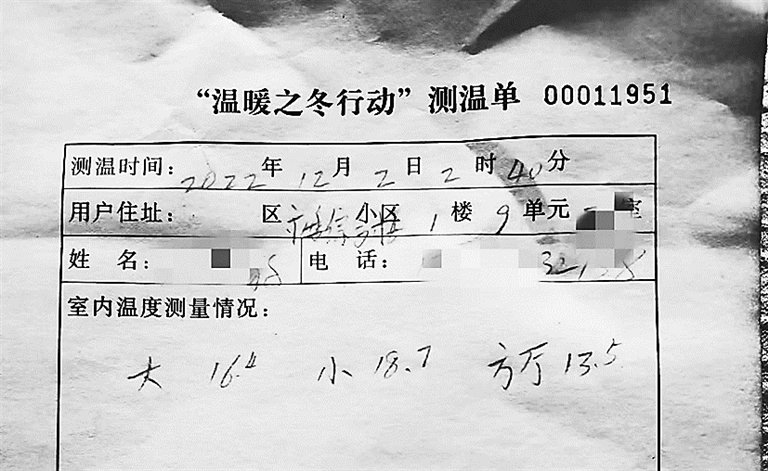 “温暖之冬行动”测温单 00011951
测温时间：2022年12月2日2时40分
用户住址： 区 小区 1楼 9单元 室
姓 名： 电 话：
室内温度测量情况：
大 16.4 小 18.7 方厅 13.5